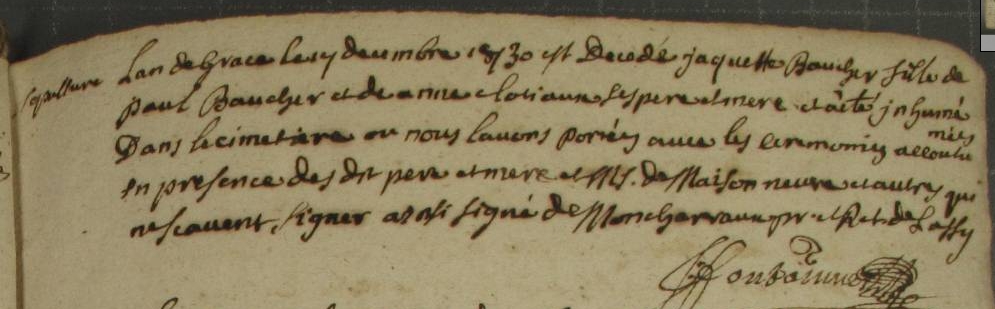 sepulture
Lan de Grace le 17 decembre 1730 est Decedé jaquette Baucher fille de
paul Baucher et de anne ses pere et mere et a été jnhumé
Dans le cimetiere ou nous lavons portéé avec les ceremonies accoutu
méés
En presence des dit pere et mere et de Maison neuve et autres qui
ne scavent signer ainsi signé de pr et Rect. de Lassy